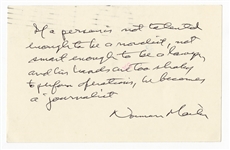 If a person is not talented
enough to be a novelist, not
smart enough to be a lawyer,
and his hands are too shaky
to perform operations, he becomes
a journalist
Norman Mailer